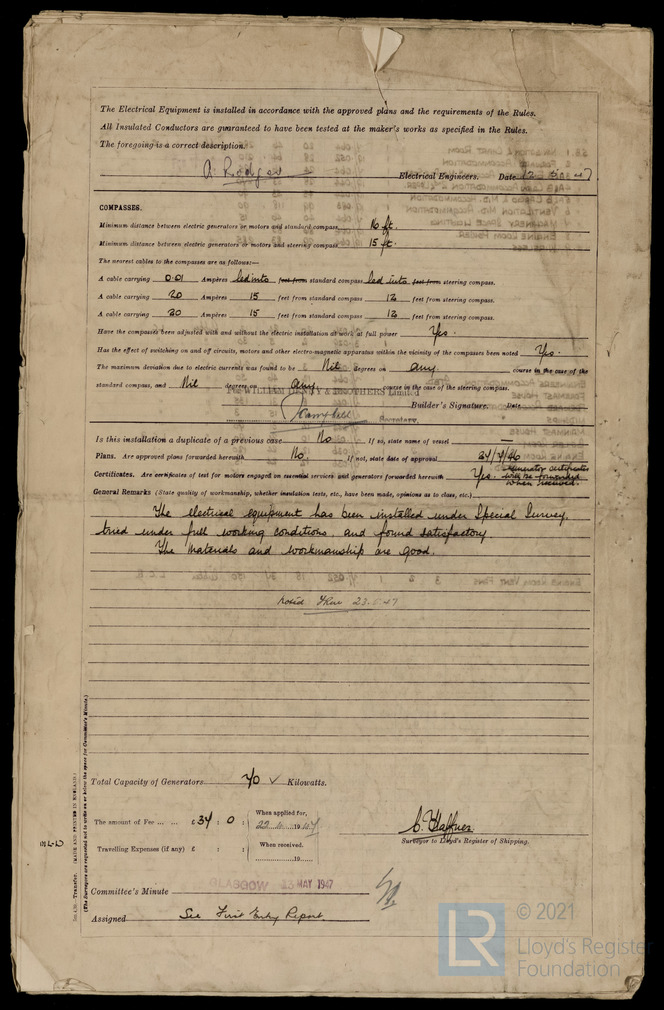 The Electrical Equipment is installed in accordance with the approved plans and the requirements of the Rules.
All Insulated Conductors are guaranteed to have been tested at the maker's works as specified in the Rules.
The foregoing is a correct description.
Electrical Engineers. Date
COMPASSES.
Minimum distance between electric generators or motors and standard compass 16 ft.
Minimum distance between electric generators or motors and steering compass 15 ft.
The nearest cables to the compasses are as follows:—
A cable carrying 0.01 Ampères led into feet from standard compass led into feet from steering compass.
A cable carrying 20 Ampères 15 feet from standard compass 12 feet from steering compass.
A cable carrying 20 Ampères 15 feet from standard compass 12 feet from steering compass.
Have the compasses been adjusted with and without the electric installation at work at full power Yes.
Has the effect of switching on and off circuits, motors and other electro-magnetic apparatus within the vicinity of the compasses been noted Yes.
The maximum deviation due to electric currents was found to be Nil degrees on any course in the case of the
standard compass, and Nil degrees on any course in the case of the steering compass.
For WILLIAM DENNY & BROTHERS Limited
Builder's Signature. Date
Secretary
Is this installation a duplicate of a previous case No If so, state name of vessel —
Plans. Are approved plans forwarded herewith No. If not, state date of approval 24/7/46
Certificates. Are certificates of test for motors engaged on essential services and generators forwarded herewith Yes. Generator certificates
will be forwarded
when received.
General Remarks (State quality of workmanship, whether insulation tests, etc., have been made, opinions as to class, etc.)
The electrical equipment has been installed under Special Survey,
tried under full working conditions and found satisfactory.
The Materials and workmanship are good.
noted 23.5.47
Total Capacity of Generators 70 ✓ Kilowatts.
The amount of Fee ... ... £ 34 : 0 :
When applied for,
Travelling Expenses (if any) £ : :
When received.
19
Surveyor to Lloyd's Register of Shipping.
Committee's Minute GLASGOW 13 MAY 1947
Assigned See First Entry Report.
Transfer. (MADE AND PRINTED IN ENGLAND.)
(The Surveyors are requested not to write on or below the space for Committee's Minute.)
LR
© 2021
Lloyd's Register
Foundation